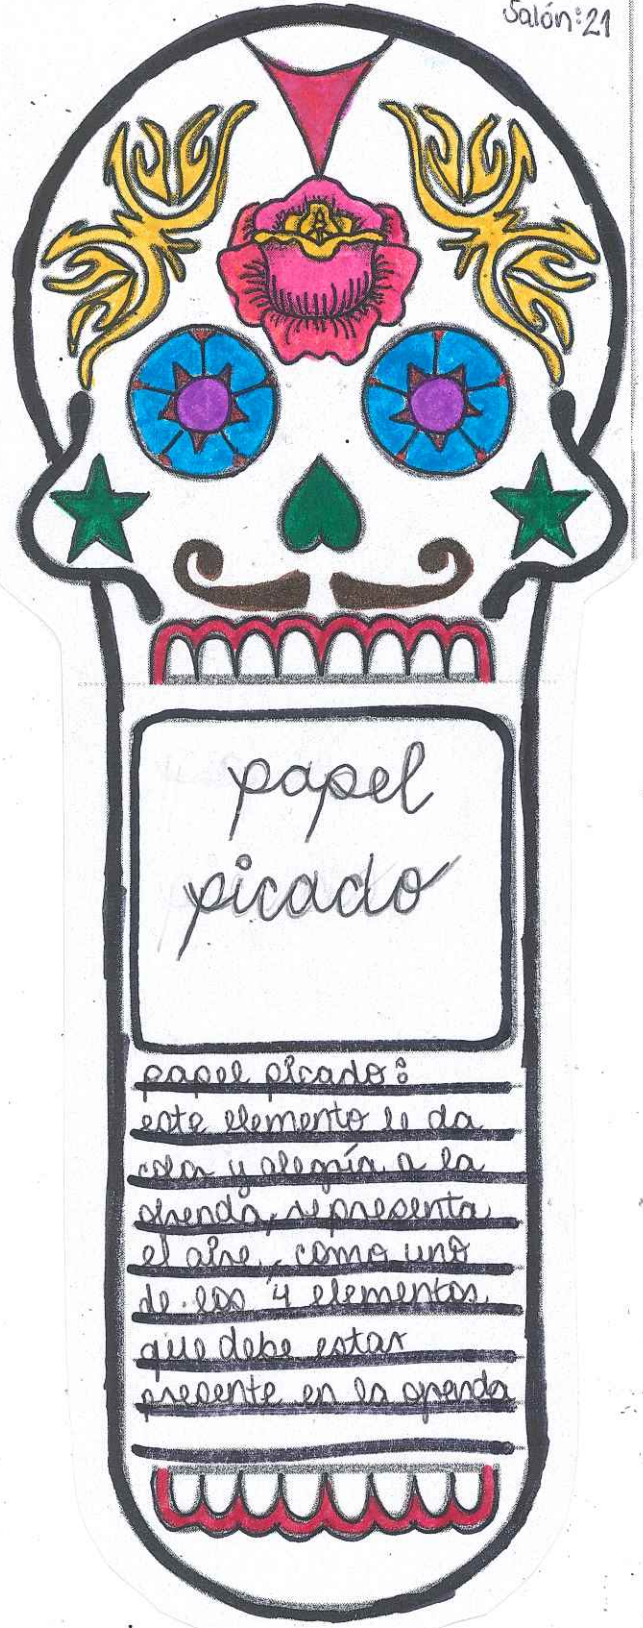 Salón:21
papel
picado
papel picado:
este elemento le da
color y alegría a la
ofrenda, representa
el aire, como uno
de los 4 elementos
que debe estar
presente en la ofrenda